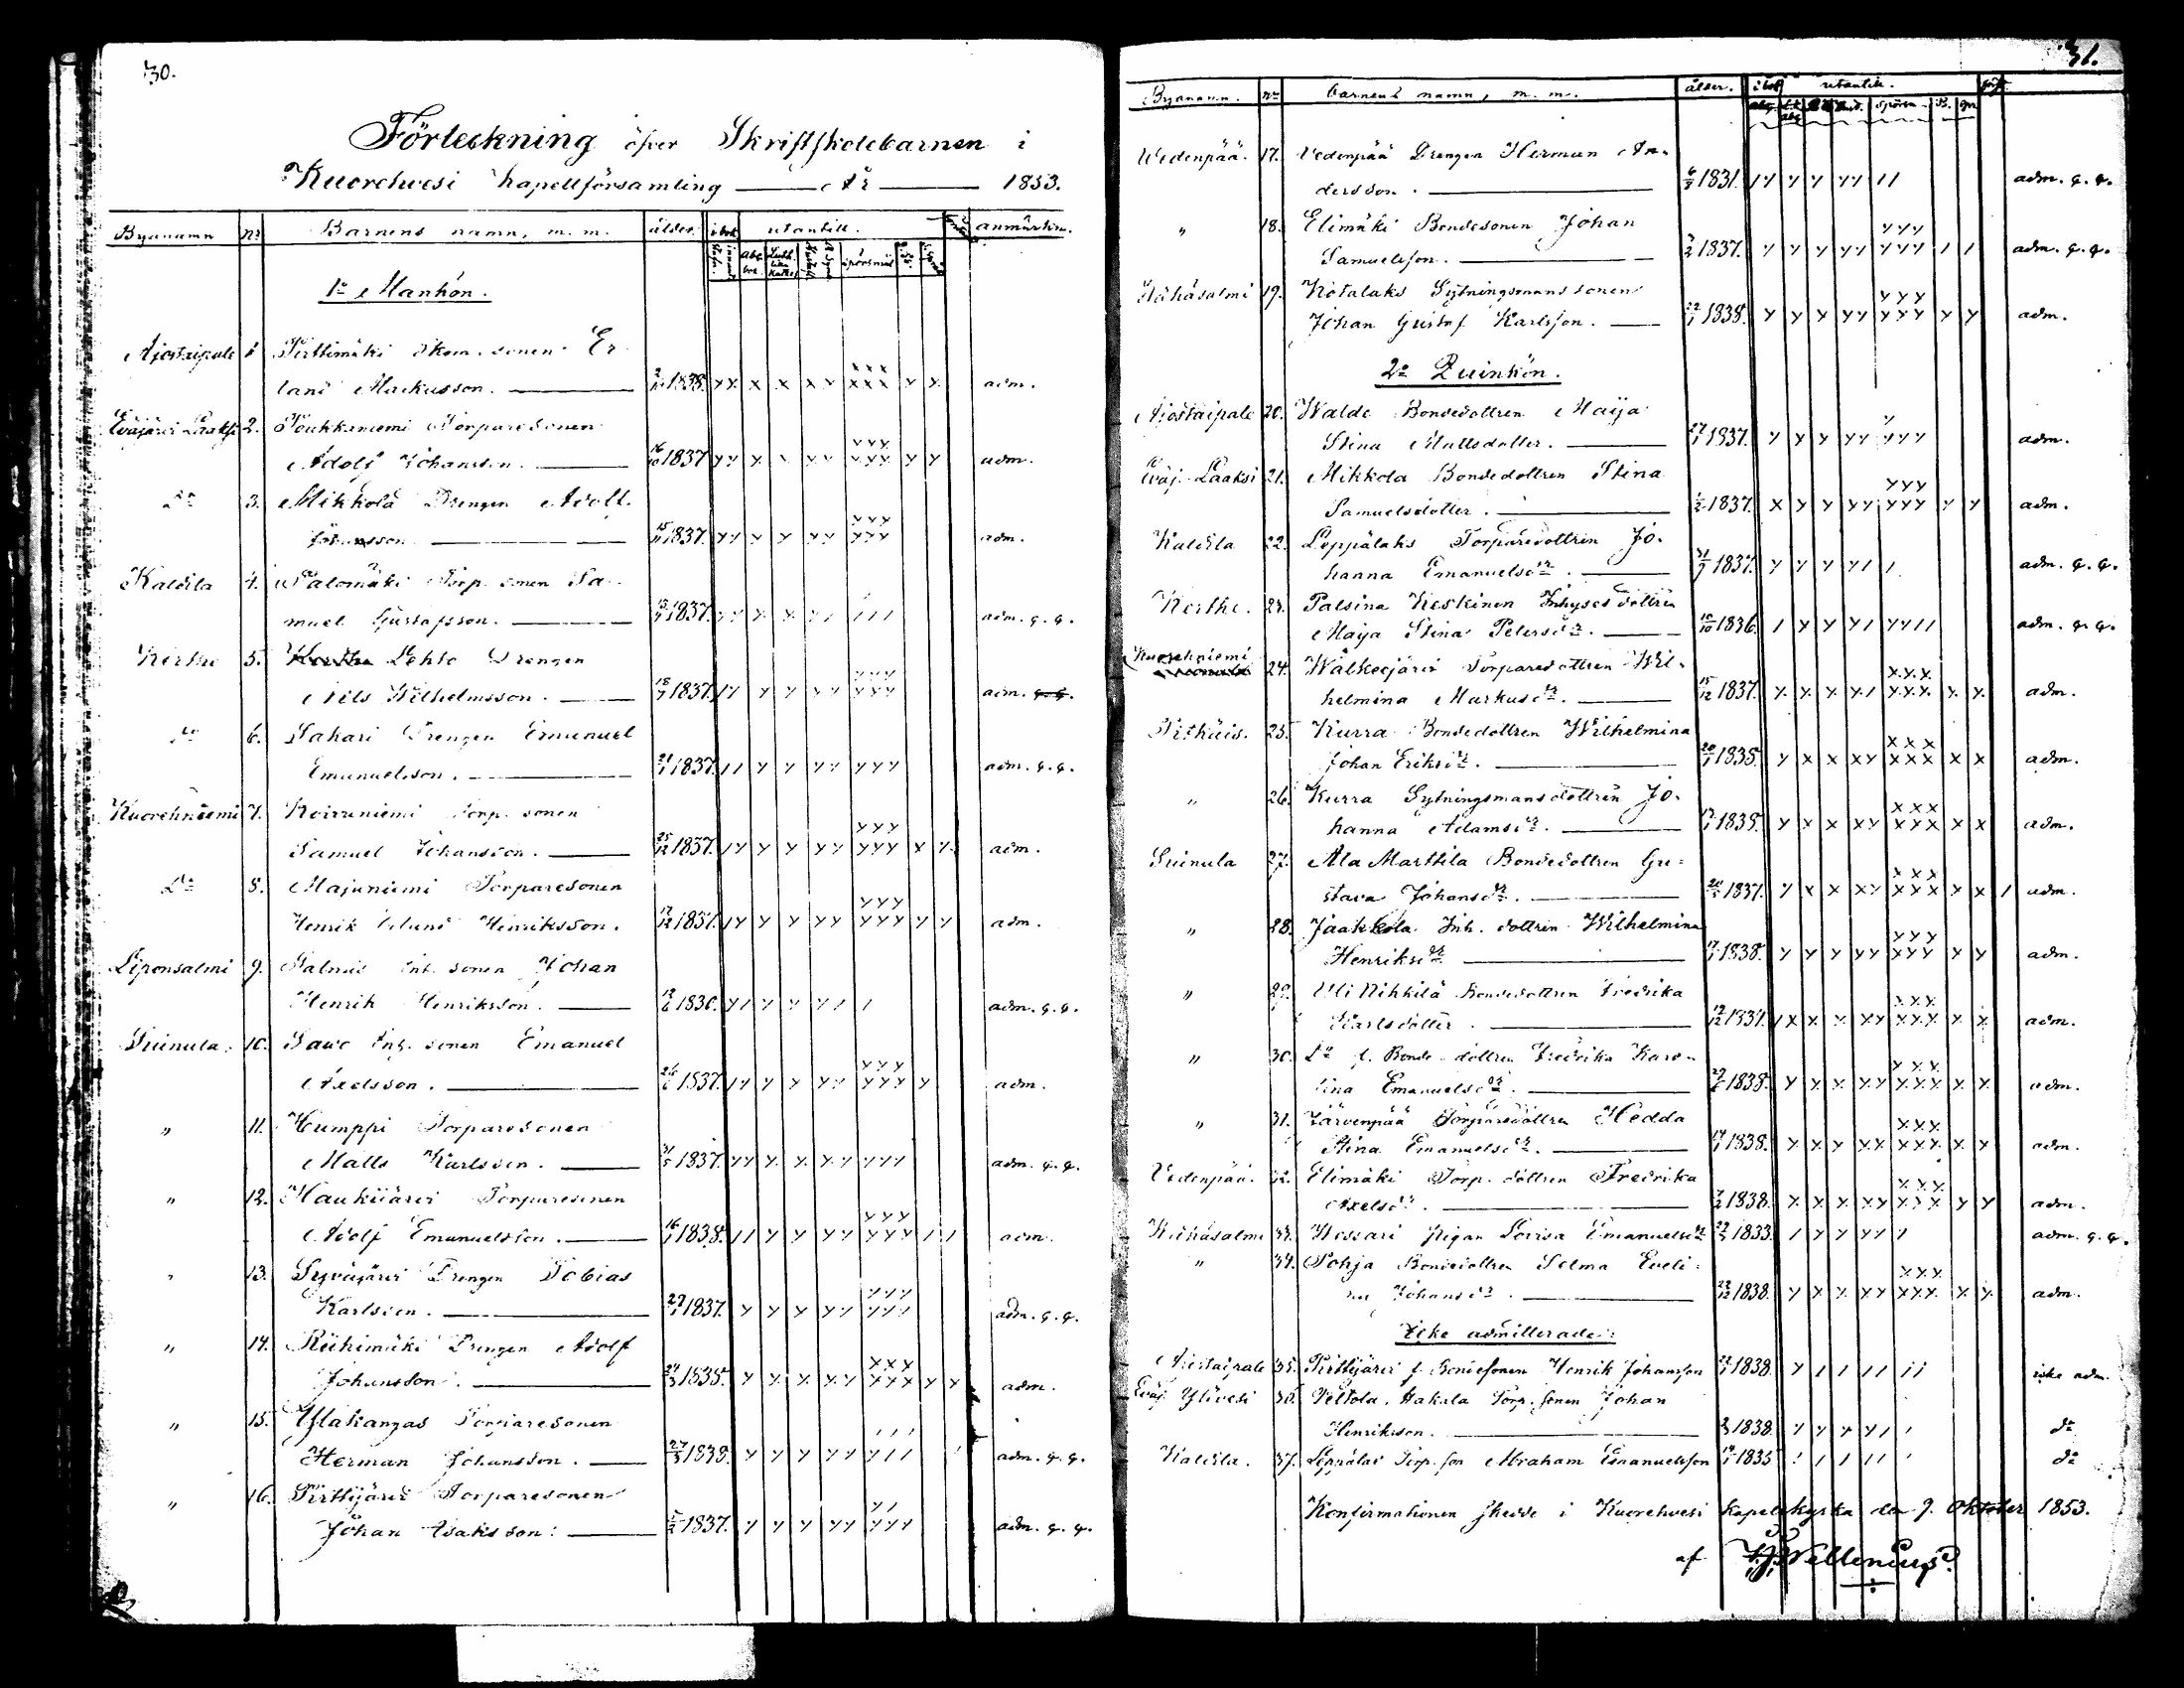 30.
Förteckning öfver Skriftskolebarnen i
Kuorehvesi kapellförsamling — År — 1853.
Byanamn N:o Barnens namn, m. m. ålder. i bok utantill. anmärkn.
1:o Mankön.
Ajostaipale 1 Pirttimäki ökon. sonen Er-
land Markusson. — 1838. adm.
Eväjärvi Laaksi 2. Poukkaniemi Torparesonen
Adolf Johansson. — 16/10 1837 adm.
D:o 3. Mikkola Drengen Adolf
Johansson — 1837. adm.
Kaldila 4. Salomäki Torp. sonen Sa-
muel Gustafsson. — 1837. adm. q. q.
Kerthe 5. Lehto Drengen
Nils Wilhelmsson. — 1837. adm.
D:o 6. Sahari Drengen Emanuel
Emanuelsson. — 1837. adm. q. q.
Kuorehniemi 7. Koivuniemi Torp. sonen
Samuel Johansson. — 25/12 1837. adm.
D:o 8. Majuniemi Torparesonen
Henrik Erland Henriksson. 17/12 1837. adm.
Liponsalmi 9. Salmis Inh. sonen Johan
Henrik Henriksson. — 1836. adm. q. q.
Suinula. 10. Sawo Inh. sonen Emanuel
Axelsson. — 1837. adm.
" 11. Humppi Torparesonen
Matts Karlsson. — 31/5 1837. adm. q. q.
" 12. Haukijärvi Torparesonen
Adolf Emanuelsson. — 16/1 1838. adm.
" 13. Syväjärvi Drengen Tobias
Karlsson. — 1837. adm. q. q.
" 14. Riihimäki Drengen Adolf
Johansson. — 1835. adm.
" 15. Ylakangas Torparesonen
Herman Johansson. — 27/3 1838. adm. q. q.
" 16. Pirttijärvi Torparesonen
Johan Isaksson. — 1837. adm. q. q.
31.
Byanamn. N:o barnens namn, m. m. ålder. i bok utantill.
Wedenpää. 17. Vedenpää Drengen Herman An-
dersson. — 1831. adm. q. q.
" 18. Elimäki Bondesonen Johan
Samuelsson. — 1837. adm. q. q.
Kähäsalmi 19. Kotalaks Sytningsmans sonen
Johan Gustaf Karlsson. — 22/1 1838. adm.
2:o Quinkön.
Ajostaipale 20. Walde Bondedottren Maija
Stina Mattsdotter. — 1837. adm.
Eväj. Laaksi 21. Mikkola Bondedottren Stina
Samuelsdotter. — 1837. adm.
Kaldila 22. Leppälaks Torparedottren Jo-
hanna Emanuelsd:r. — 1837. adm. q. q.
Kerthe. 23. Palsina Keskinen Inhyses dottren
Maija Stina Petersd:r. — 1836. adm. q. q.
Kuorehniemi 24. Walkeejärvi Torparedottren Wil-
helmina Markusd:r. — 15/12 1837. adm.
25. Kurra Bondedottren Wilhelmina
Johan Eriksd:r. — 1835. adm.
" 26. Kurra Sytningsmansdottren Jo-
hanna Adamsd:r. — 1838. adm.
Suinula 27. Ala Marttila Bondedottren Gu-
stava Johansd:r. — 1837. adm.
" 28. Jaakkola Inh. dottren Wilhelmina
Henriksd:r — 1838. adm.
" 29. Uli Nihkilä Bondedottren Fredrika
Karlsdotter. — 1837. adm.
" 30. D:o f. Bonde-dottren Fredrika Karo-
lina Emanuelsd:r. — 1838. adm.
" 31. Järvenpää Torparedottren Hedda
Stina Emanuelsd:r. — 1838. adm.
Vedenpää. 32. Elimäki Torp. dottren Fredrika
Axelsd:r. — 1838. adm.
Kähäsalmi 33. Hossari pigan Lovisa Emanuelsd:r 1833. adm. q. q.
" 34. Pohja Bondedottren Selma Eveli-
na Johansd:r. — 1838. adm.
Icke admitterade:
Ajostaipale 35. Pirttijärvi f. Bondesonen Henrik Johansson 1838. icke adm.
Eväj. Ylivesi 36. Peltola, Hakala Torp. sonen Johan
Henriksson. — 1838. d:o
Kaldila. 37. Leppälaks Torp. son Abraham Emanuelsson 1835 d:o
Konfirmationen skedde i Kuorehvesi kapellkyrka den 9. Oktober 1853.
af